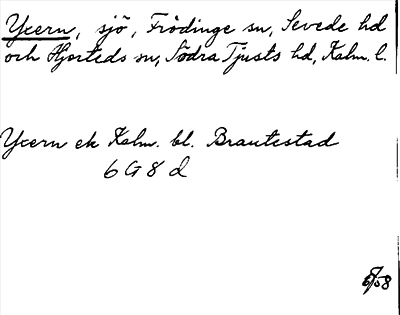 Ycern, sjö, Frödinge sn, Sevede hd
och Hjorteds sn, Södra Tjusts hd, Kalm. l.
Ycern ek Kalm. bl. Brantestad
6 G 8 d